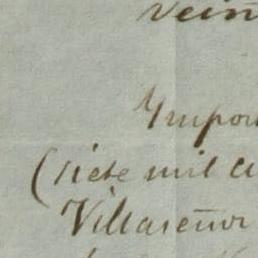 vein
Impor
(siete mil cu
Villaseñor